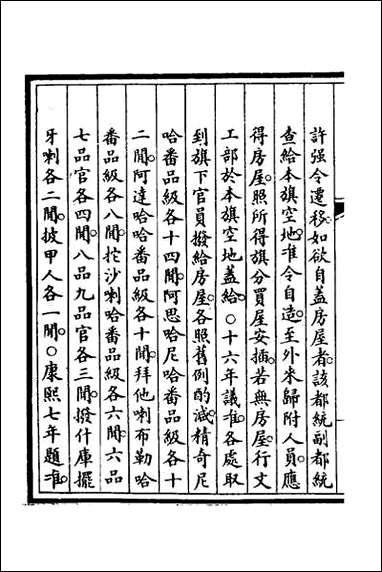 許强令遷移。如欲自蓋房屋者。該都統副都統
查給本旗空地。准令自造。至外來歸附人員。應
得房屋。照所得旗分買屋安插。若無房屋。行文
工部於本旗空地蓋給。○十六年議准。各處取
到旗下官員撥給房屋。各照舊例酌減。精奇尼
哈番品級各十四間。阿思哈尼哈番品級各十
二間。阿達哈哈番品級各十間。拜他喇布勒哈
番品級各八間。拕沙喇哈番品級各六間。六品
七品官各四間。八品九品官各三間。撥什庫擺
牙喇各二間。披甲人各一間。○康熙七年題准。